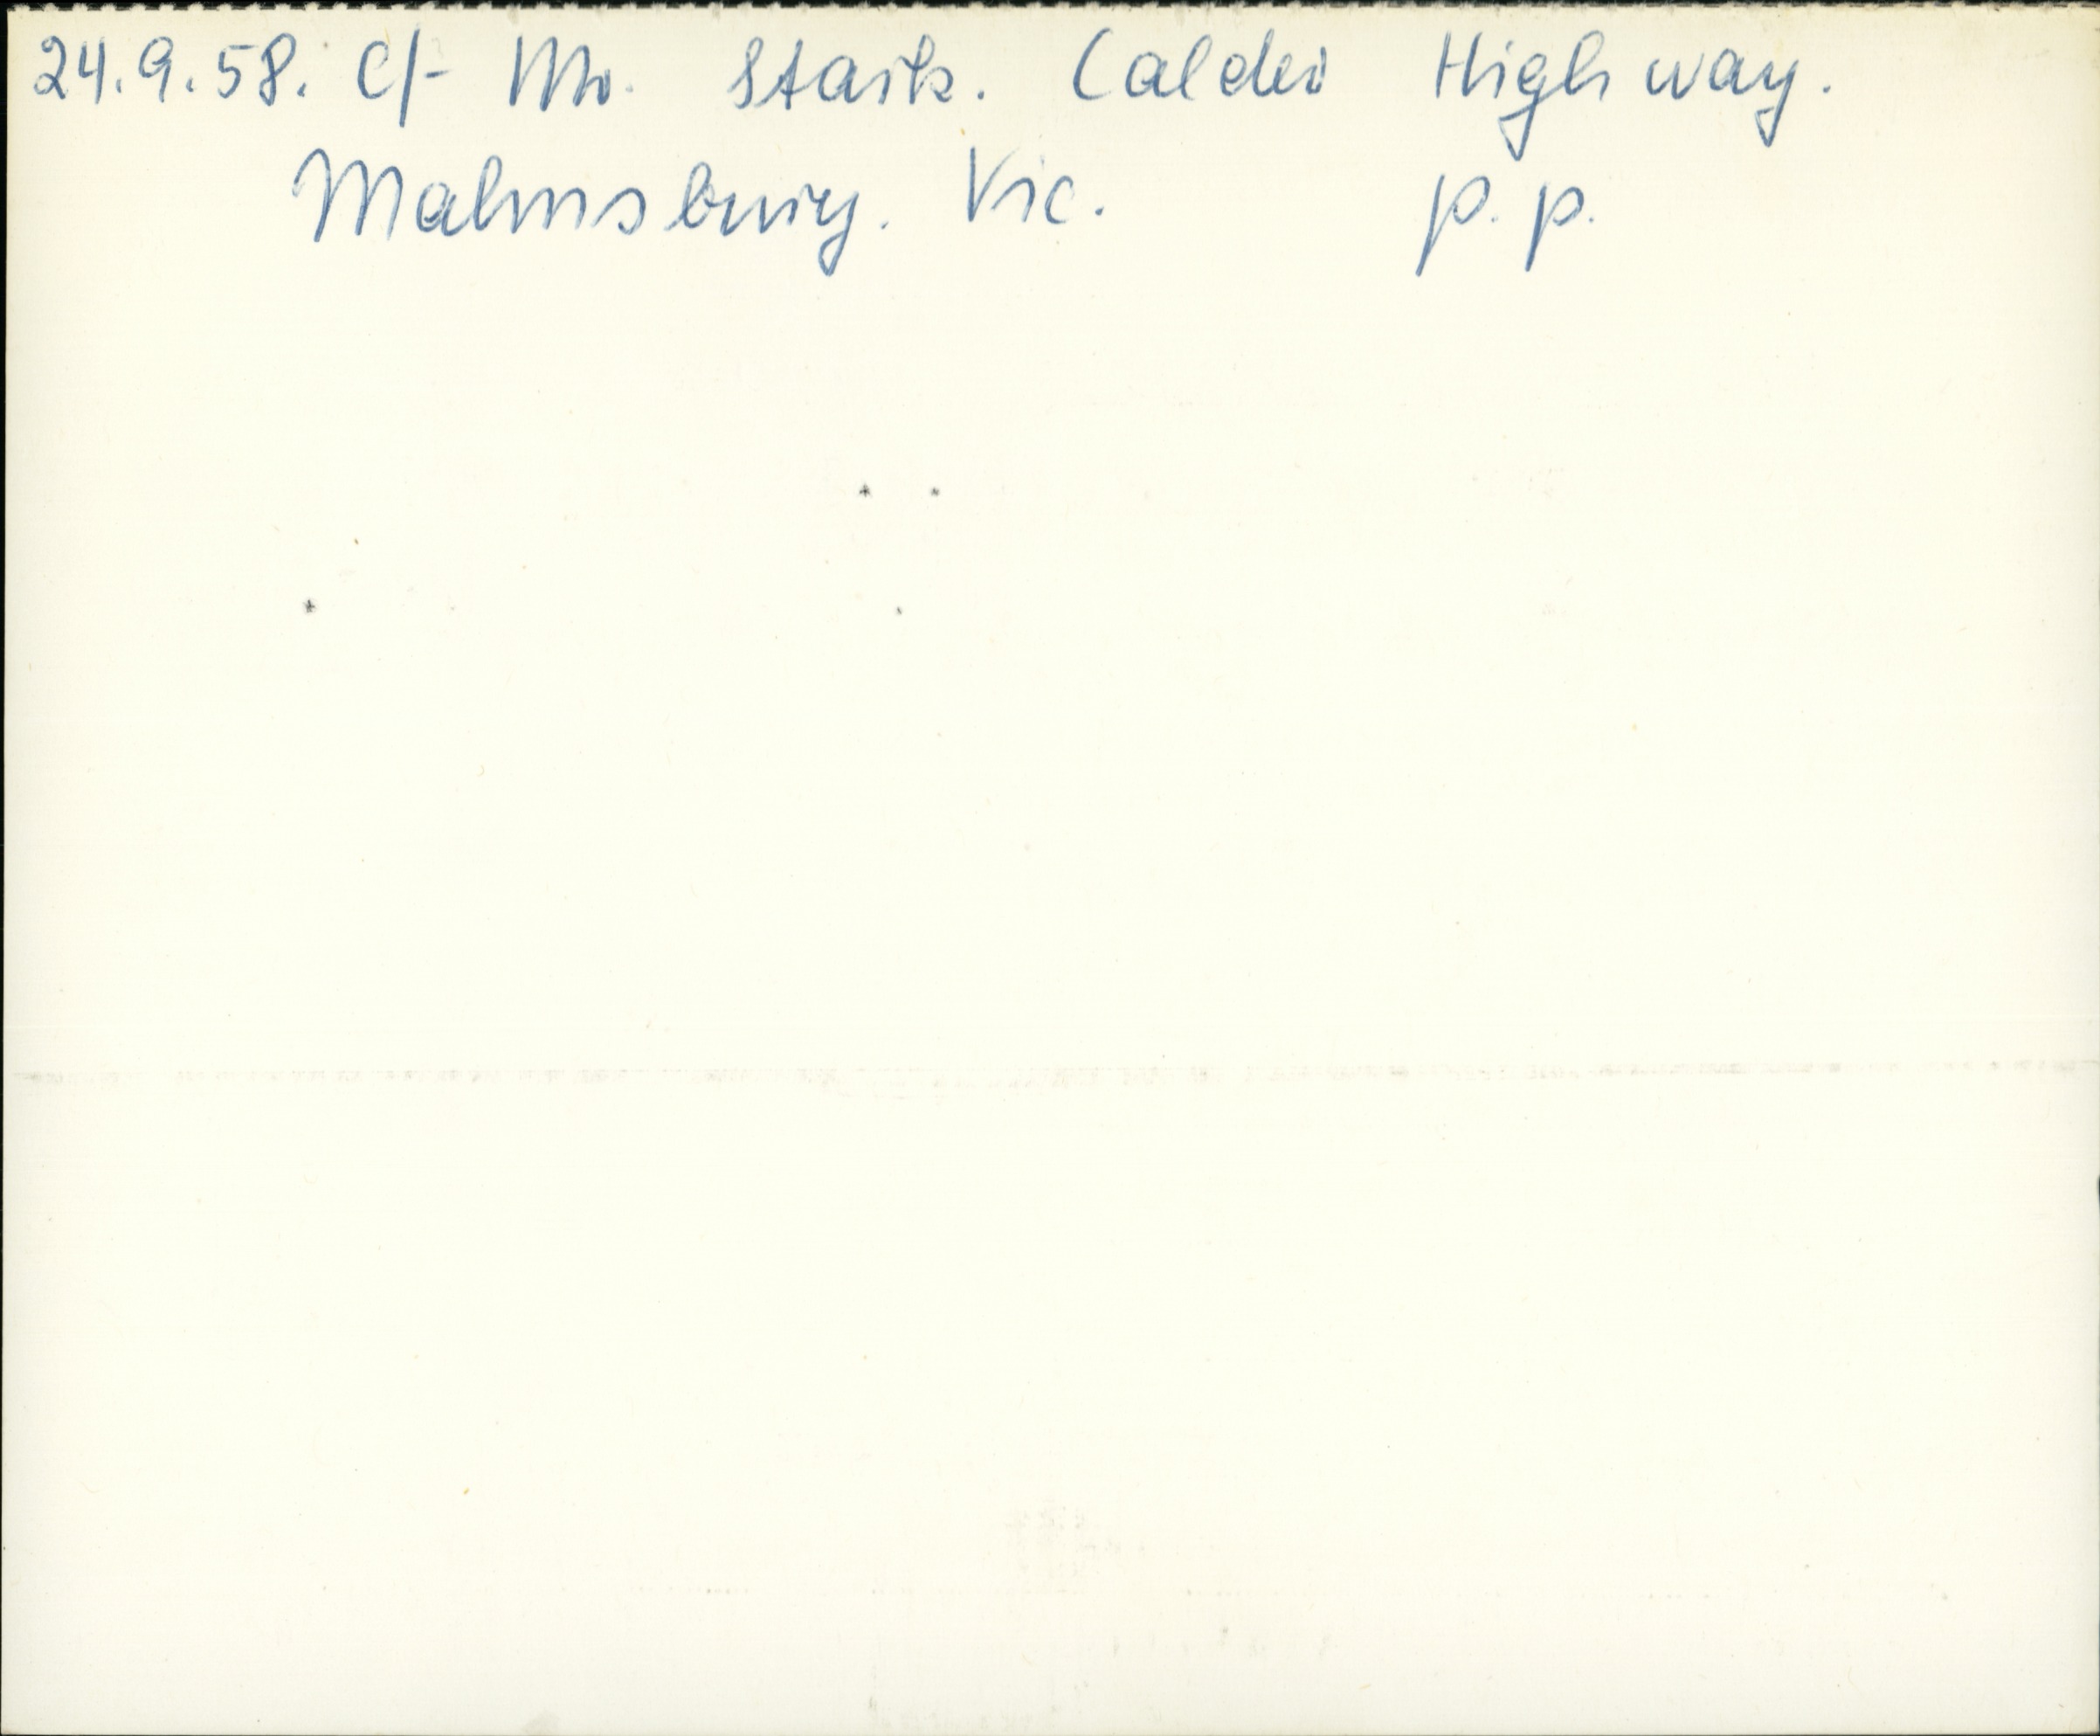 24.9.58. C/- Mr. Stark. Calder Highway.
Malmsbury. Vic. p.p.